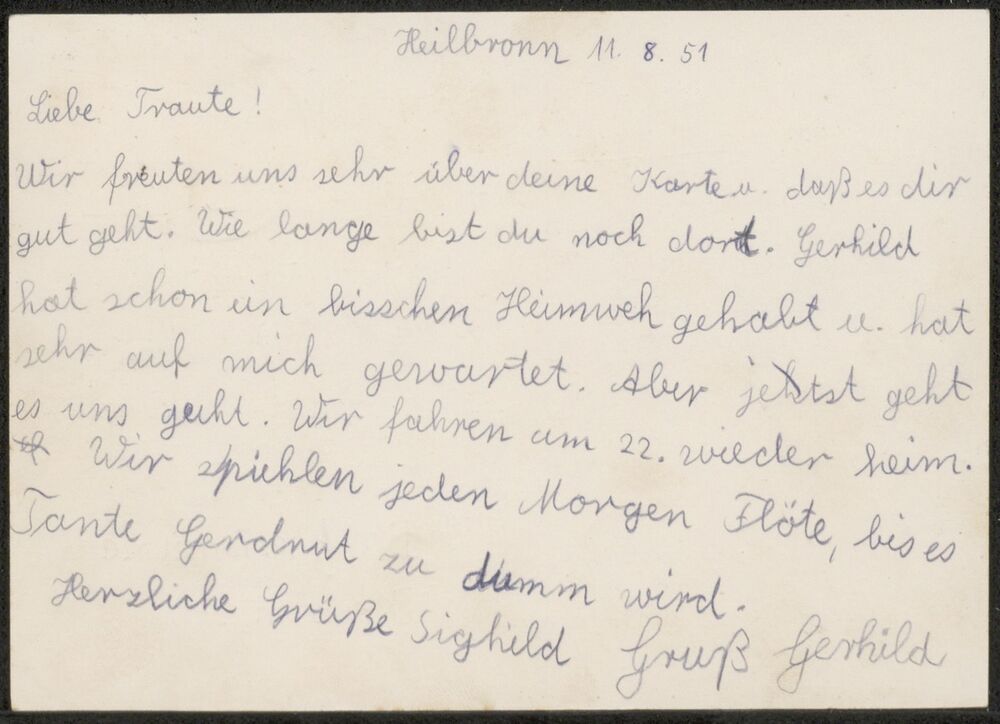 Heilbronn 11. 8. 51
Liebe Traute!
Wir freuten uns sehr über deine Karte u. daß es dir
gut geht. Wie lange bist du noch dort. Gerhild
hat schon ein bisschen Heimweh gehabt u. hat
sehr auf mich gewartet. Aber jetst geht
es uns guht. Wir fahren am 22. wieder heim.
Wir spiehlen jeden Morgen Flöte, bis es
Tante Gerdnut zu dumm wird.
Herzliche Grüße Sighild Gruß Gerhild